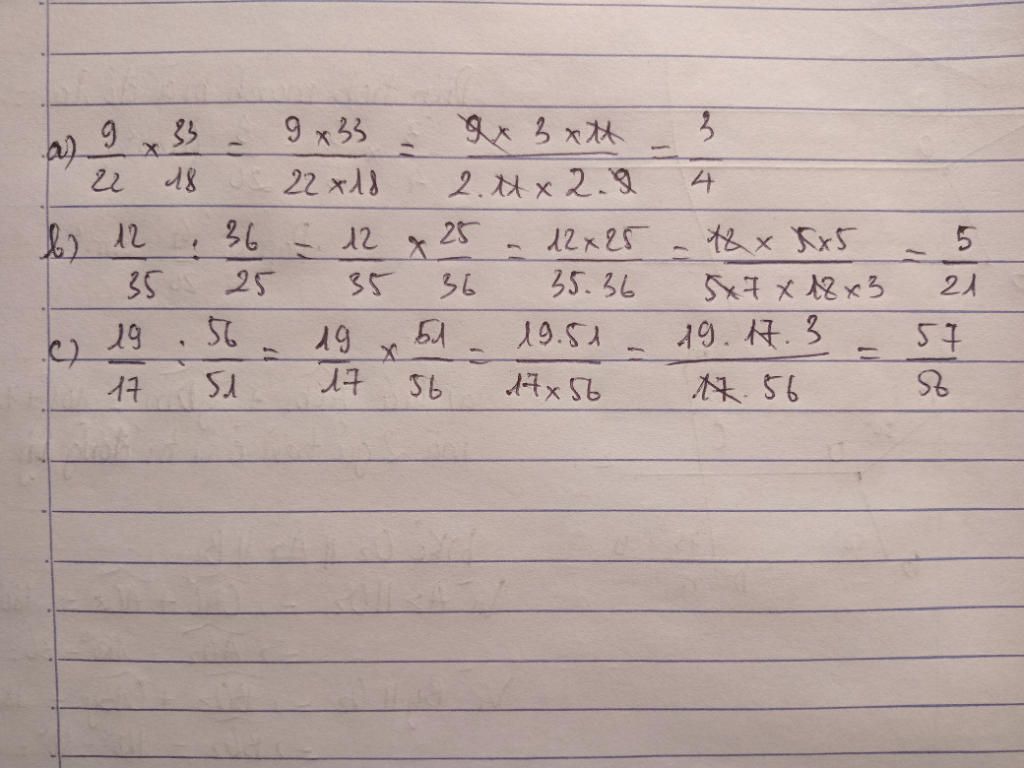 a) 9/22 × 33/18 = 9 × 33/22 × 18 = 9 × 3 × 11/2 . 11 × 2 . 9 = 3/4
b) 12/35 : 36/25 = 12/35 × 25/36 = 12 × 25/35 . 36 = 12 × 5 × 5/5 × 7 × 12 × 3 = 5/21
c) 19/17 : 56/51 = 19/17 × 51/56 = 19 . 51/17 × 56 = 19 . 17 . 3/17 . 56 = 57/56